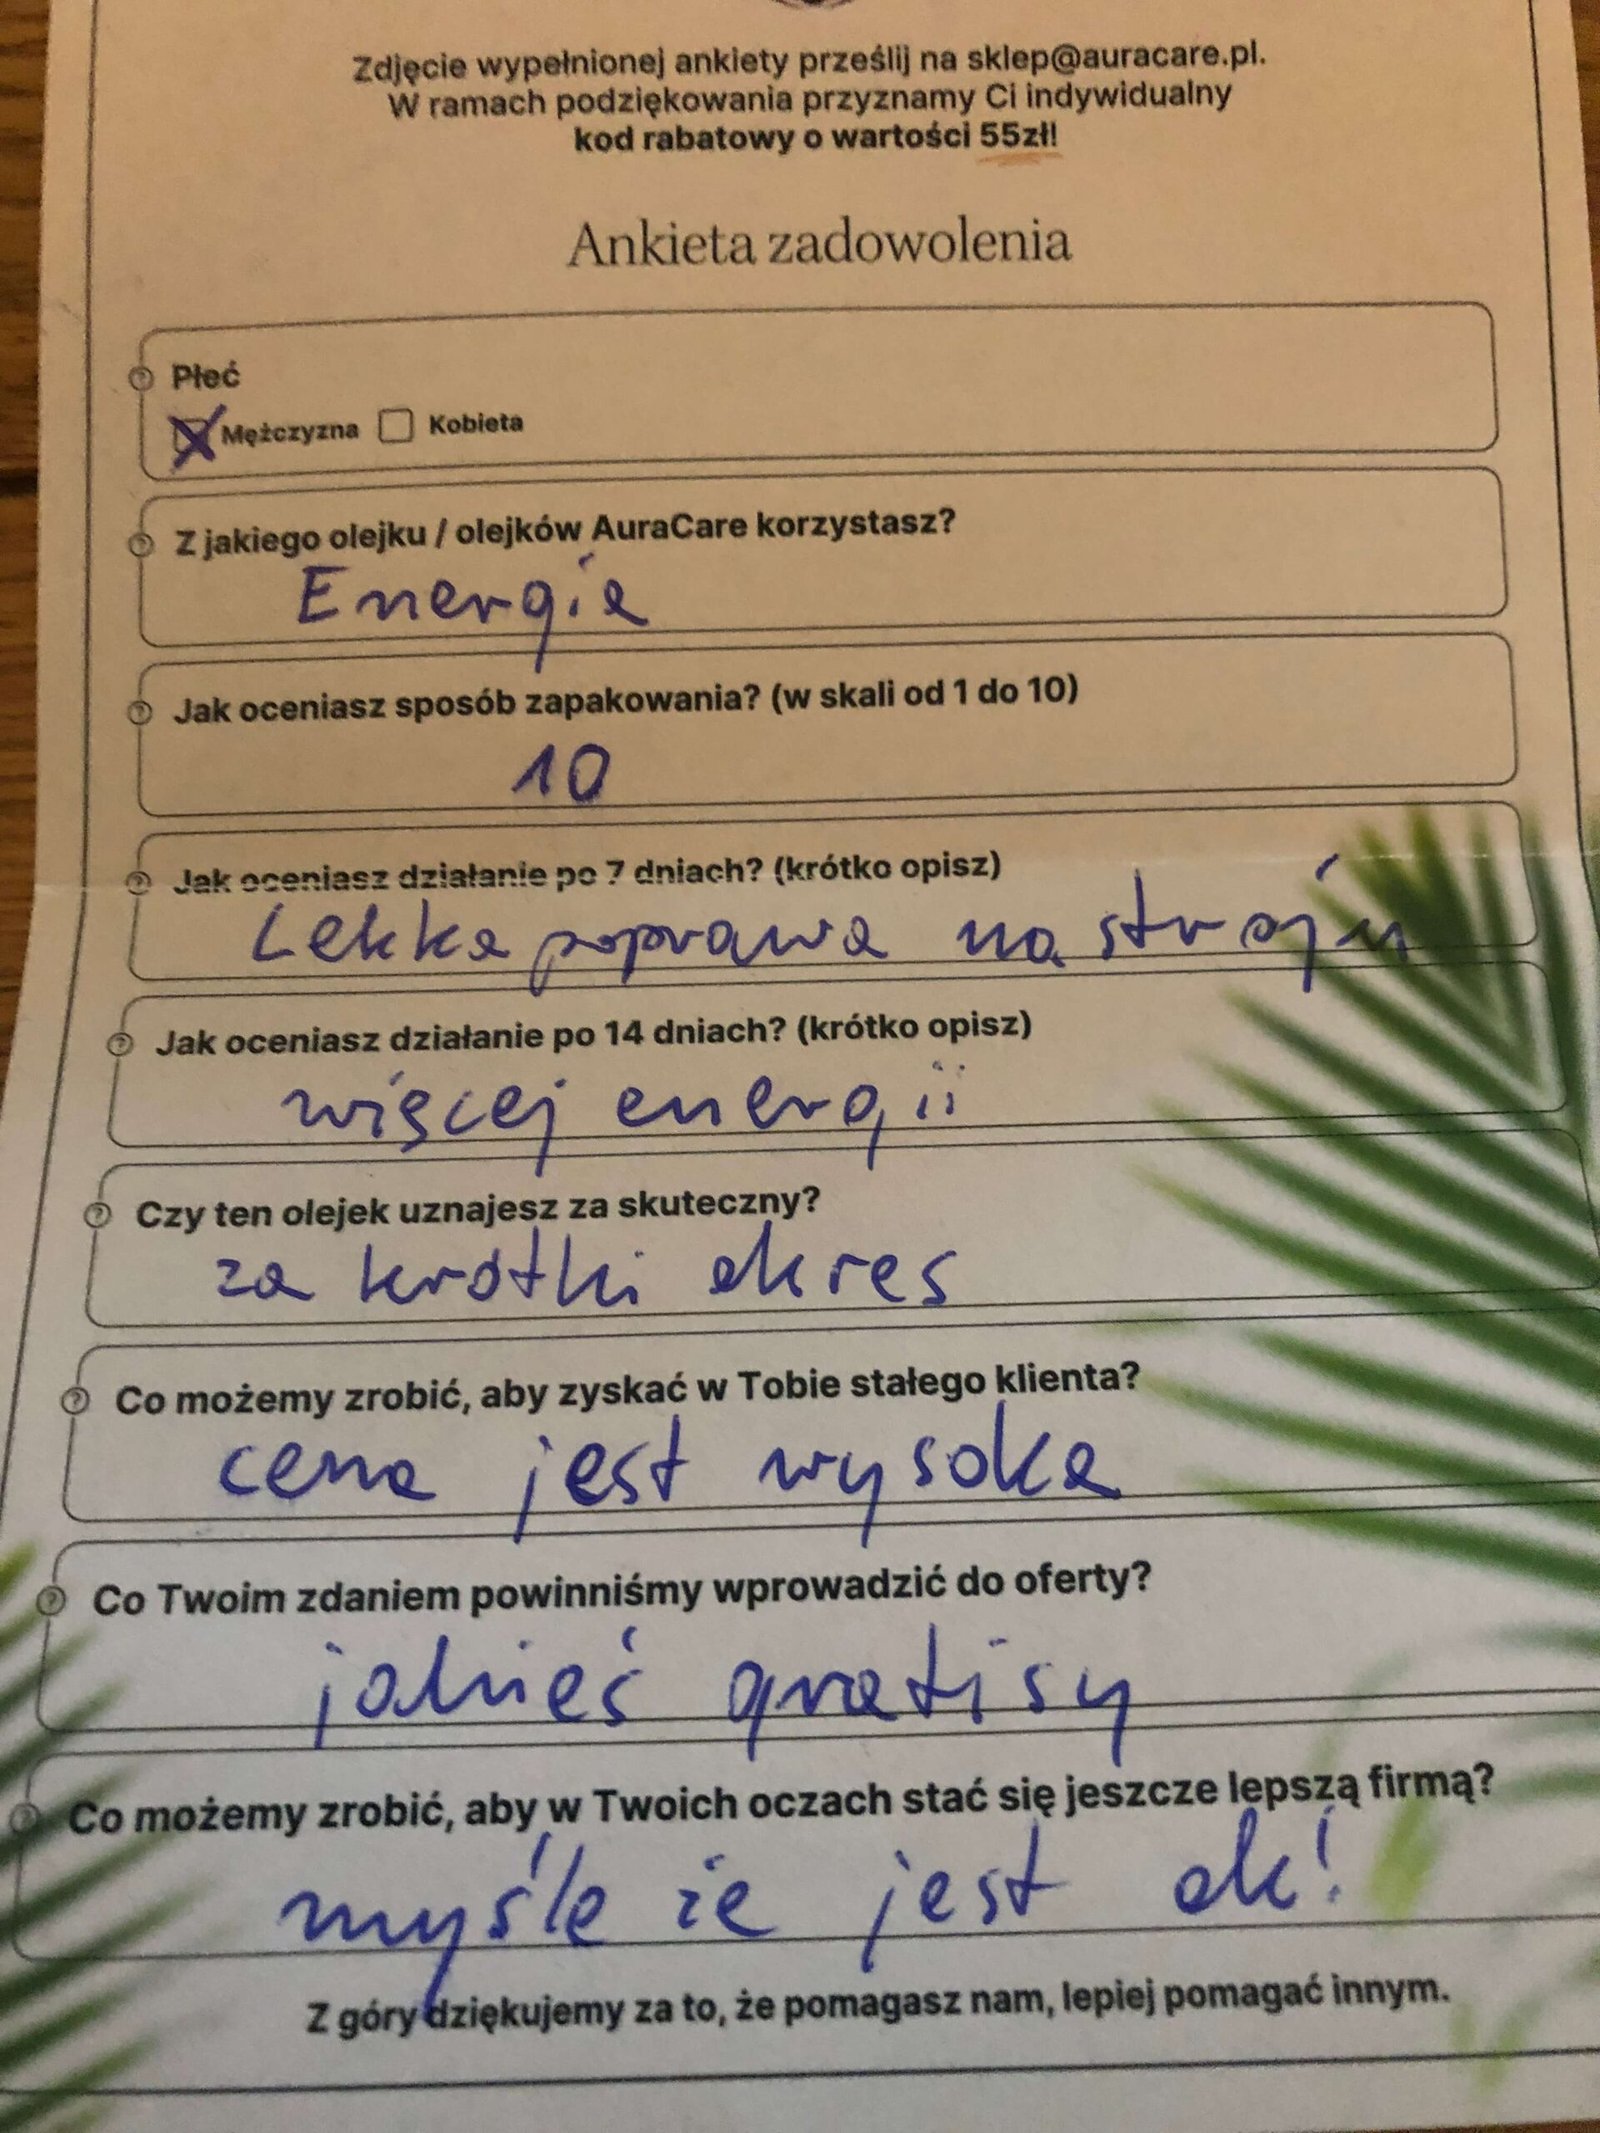 Zdjęcie wypełnionej ankiety prześlij na sklep@auracare.pl.
W ramach podziękowania przyznamy Ci indywidualny
kod rabatowy o wartości 55zł!
Ankieta zadowolenia
Płeć
Mężczyzna Kobieta
Z jakiego olejku / olejków AuraCare korzystasz?
Energia
Jak oceniasz sposób zapakowania? (w skali od 1 do 10)
10
Jak oceniasz działanie po 7 dniach? (krótko opisz)
Lekka poprawa nastroju
Jak oceniasz działanie po 14 dniach? (krótko opisz)
więcej energii
Czy ten olejek uznajesz za skuteczny?
za krótki okres
Co możemy zrobić, aby zyskać w Tobie stałego klienta?
cena jest wysoka
Co Twoim zdaniem powinniśmy wprowadzić do oferty?
jakieś gratisy
Co możemy zrobić, aby w Twoich oczach stać się jeszcze lepszą firmą?
myślę że jest ok!
Z góry dziękujemy za to, że pomagasz nam, lepiej pomagać innym.